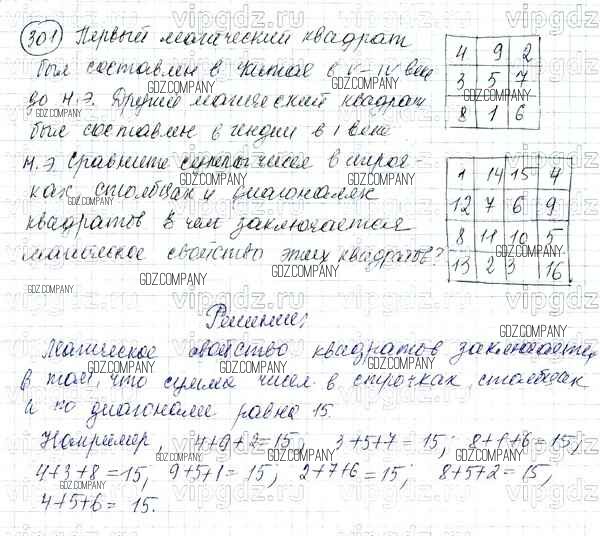 301 Первый магический квадрат
был составлен в Китае в V-IV веке
до н.э. Другой магический квадрат
был составлен в Индии в I веке
н.э. Сравните суммы чисел в строч-
ках, столбцах и диагоналях
квадратов. В чем заключается
магическое свойство этих квадратов?
4 9 2
3 5 7
8 1 6
1 14 15 4
12 7 6 9
8 11 10 5
13 2 3 16
Решение:
Магическое свойство квадратов заключается
в том, что сумма чисел в строчках, столбцах
и по диагонали равна 15.
Например, 4+9+2=15, 3+5+7=15; 8+1+6=15;
4+3+8=15, 9+5+1=15; 2+7+6=15; 8+5+2=15,
4+5+6=15.
vipgdz.ru
GDZ.COMPANY